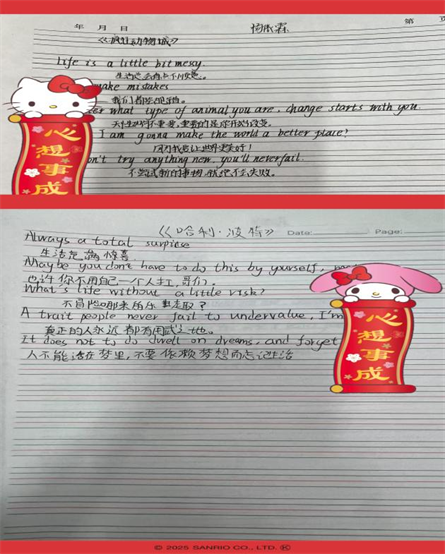 年 月 日
第 页
《疯狂动物城》
Life is a little bit messy.
make mistakes
what type of animal you are, change starts with you.
I am gonna make the world a better place!
try anything new, you'll never fail.
心想事成
《哈利·波特》
Date: Page:
Always a total surpiese
生活充满惊喜
Maybe you don't have to do this by yourself,
也许你不用自己一个人扛,哥们。
What's life without a little risk?
不冒险哪来的乐趣?
A trait people never fail to undervalue, I'm
真正的人永远都有用武之地。
It does not to do dwell on dreams, and forget
人不能活在梦里,不要依赖梦想而忘记生活
心想事成
© 2025 SANRIO CO., LTD. Ⓚ